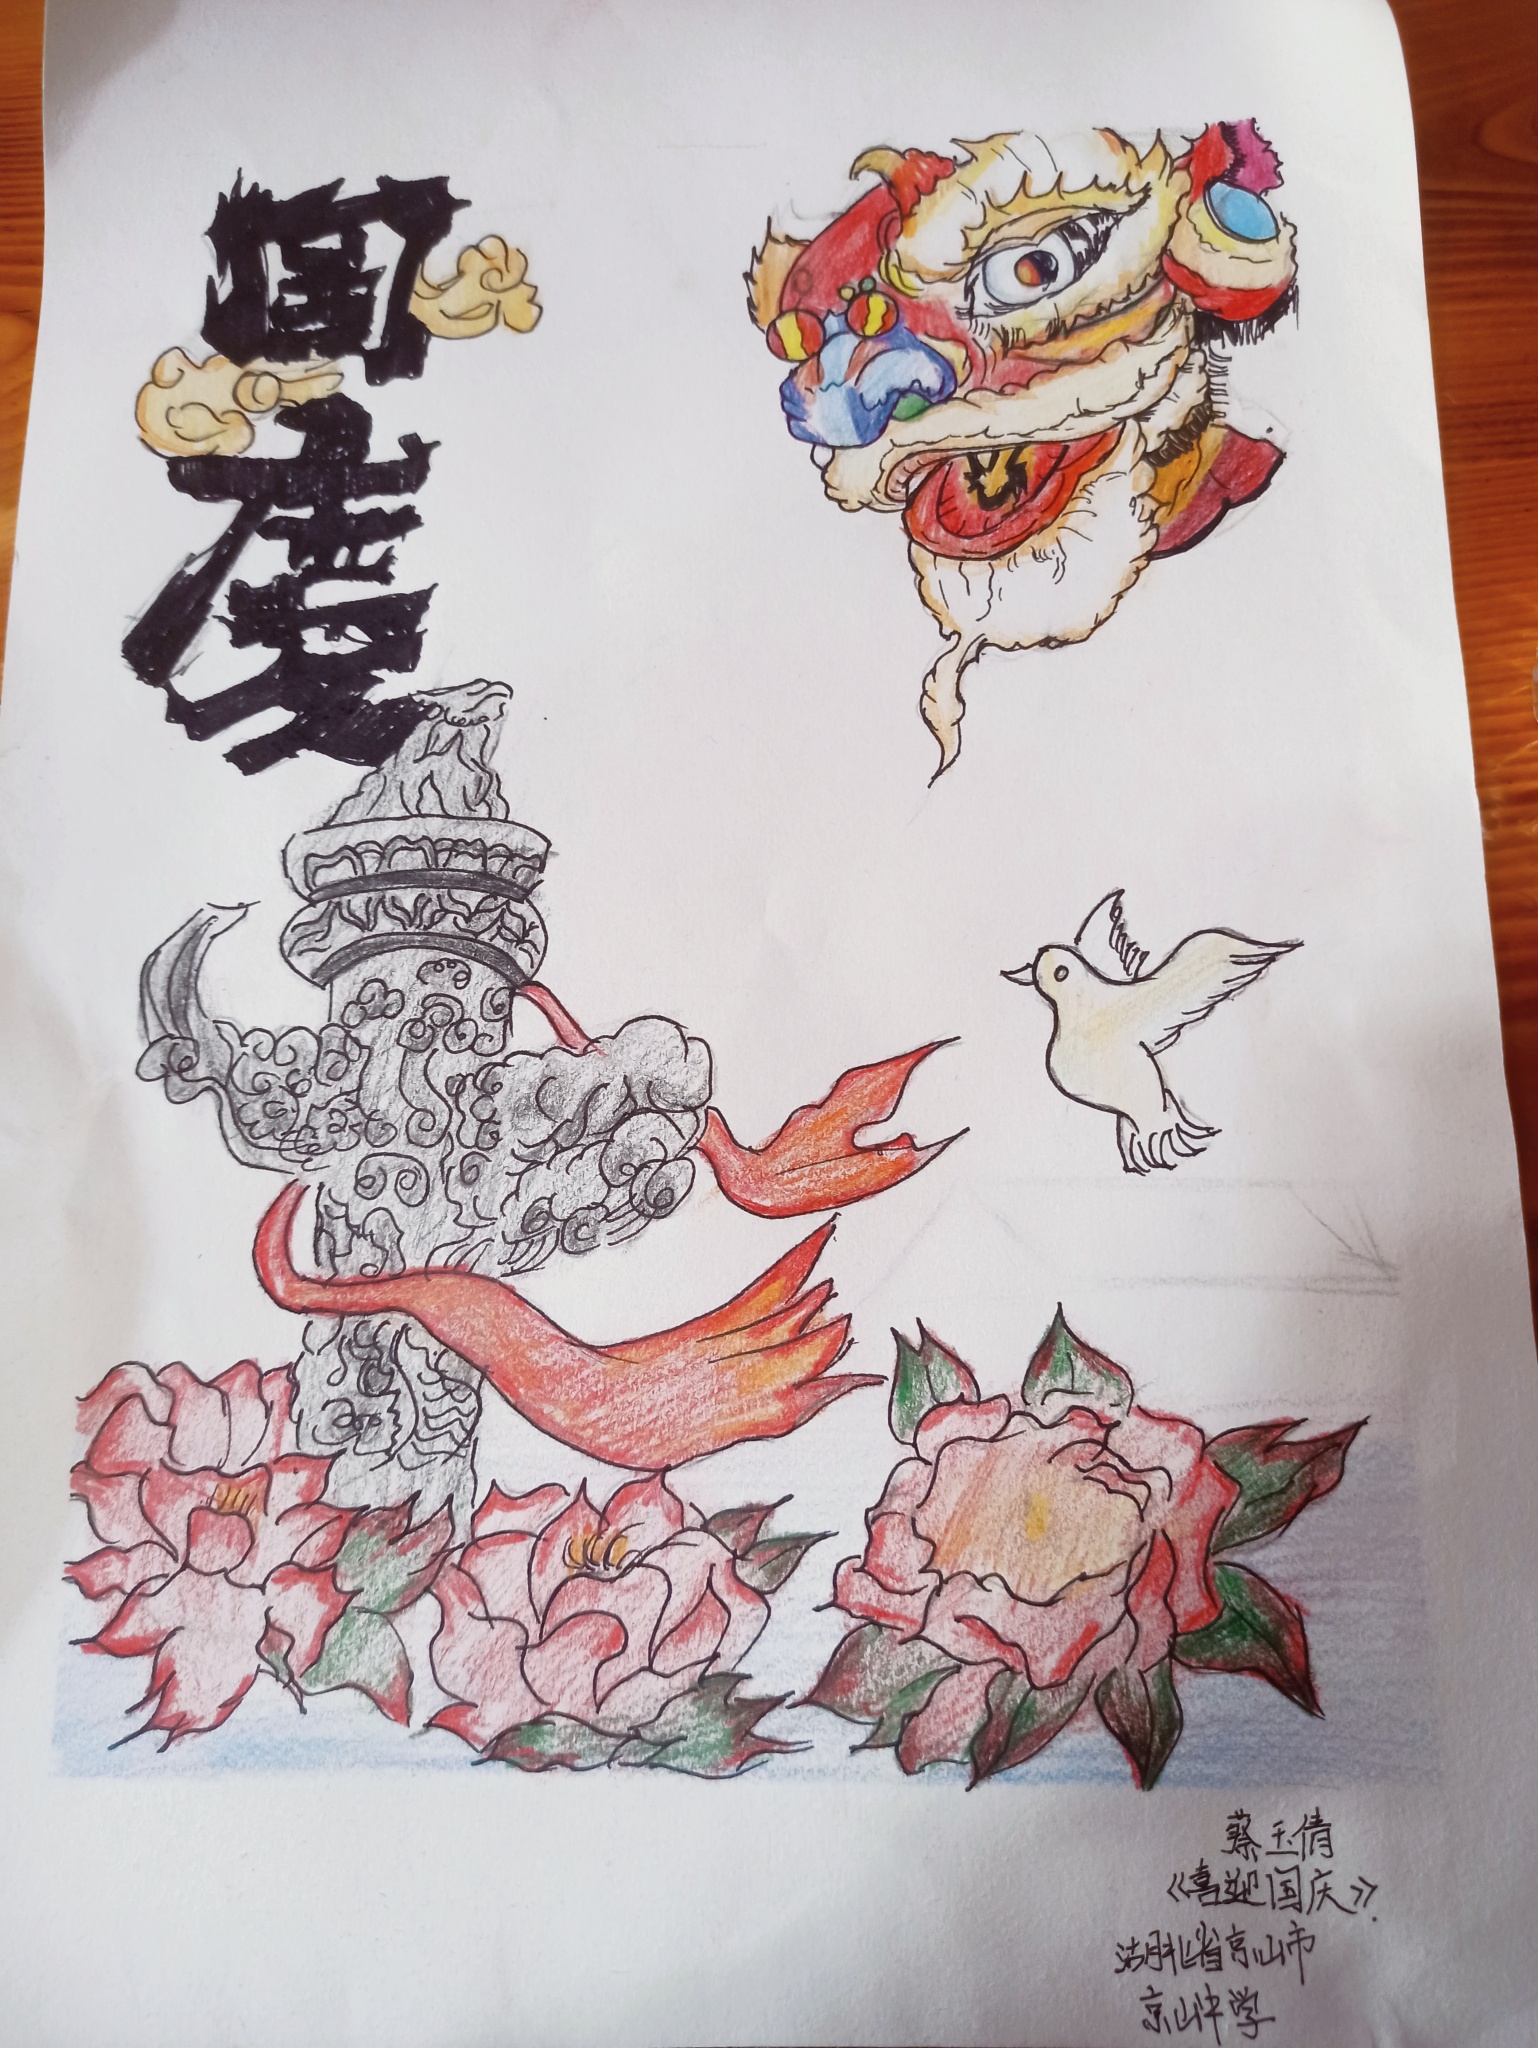 国
慶
蔡玉倩
《喜迎国庆》
湖北省京山市
京山中学